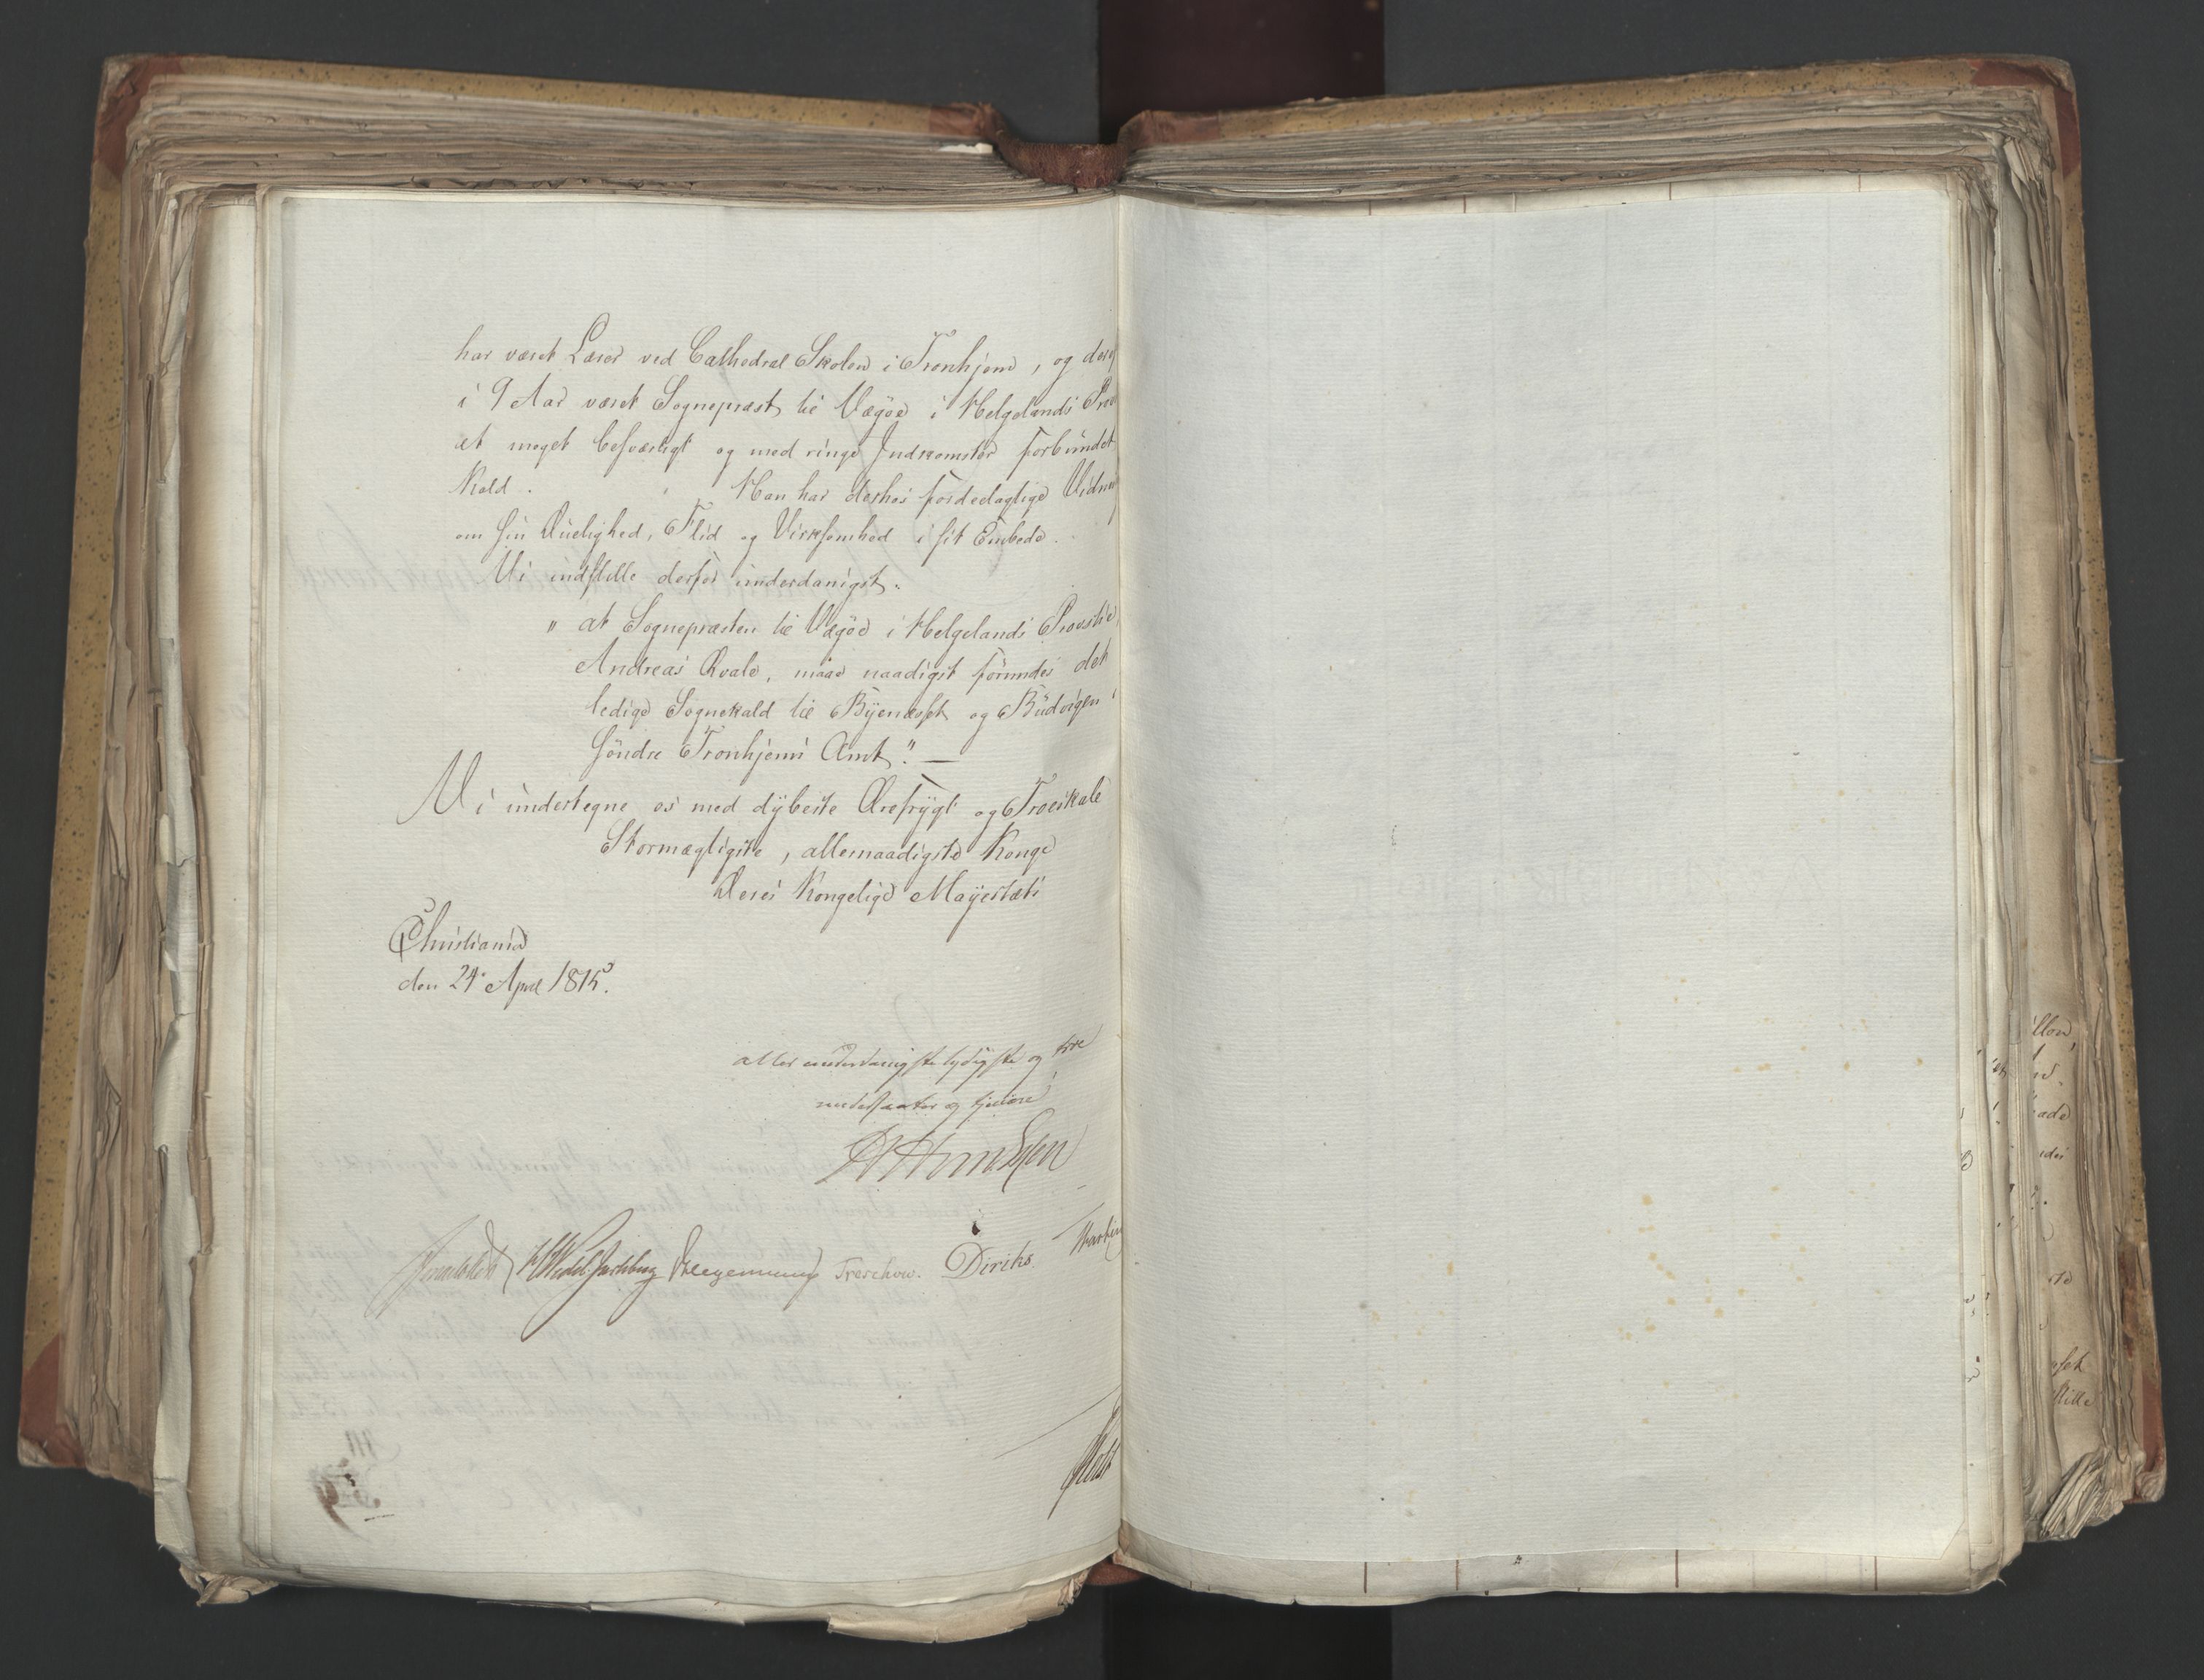 har været Lærer ved Cathedral Skolen i Tronhjem, og deref
i 9 Aar været Sognepræst til Vægöe i Helgelands Pro
et meget besværligt og med ringe Indkomster forbundet
Kald. Han har derhos fordeelagtige Vidne
om sin Duelighed, Flid og Virksomhed i sit Embede.
Vi indstille derfor underdanigst:
" at Sognepræsten til Vægöe i Helgelands Provstie,
Andreas Qvale, maae naadigst forundes det
ledige Sognekald til Byenæsset og Büdvigen i
Söndre Tronhjems Amt". —
Vi undertegne os med dybeste Ærefrygt og Troeskab
Stormægtigste, allernaadigste Konge
Deres Kongelige Mayestæts
Christiania
den 24 April 1815.
allerunderdanigste lydigste og troe
undersaatter og tjenere
Wedel Jarlsberg Treschow. Diriks
Holst